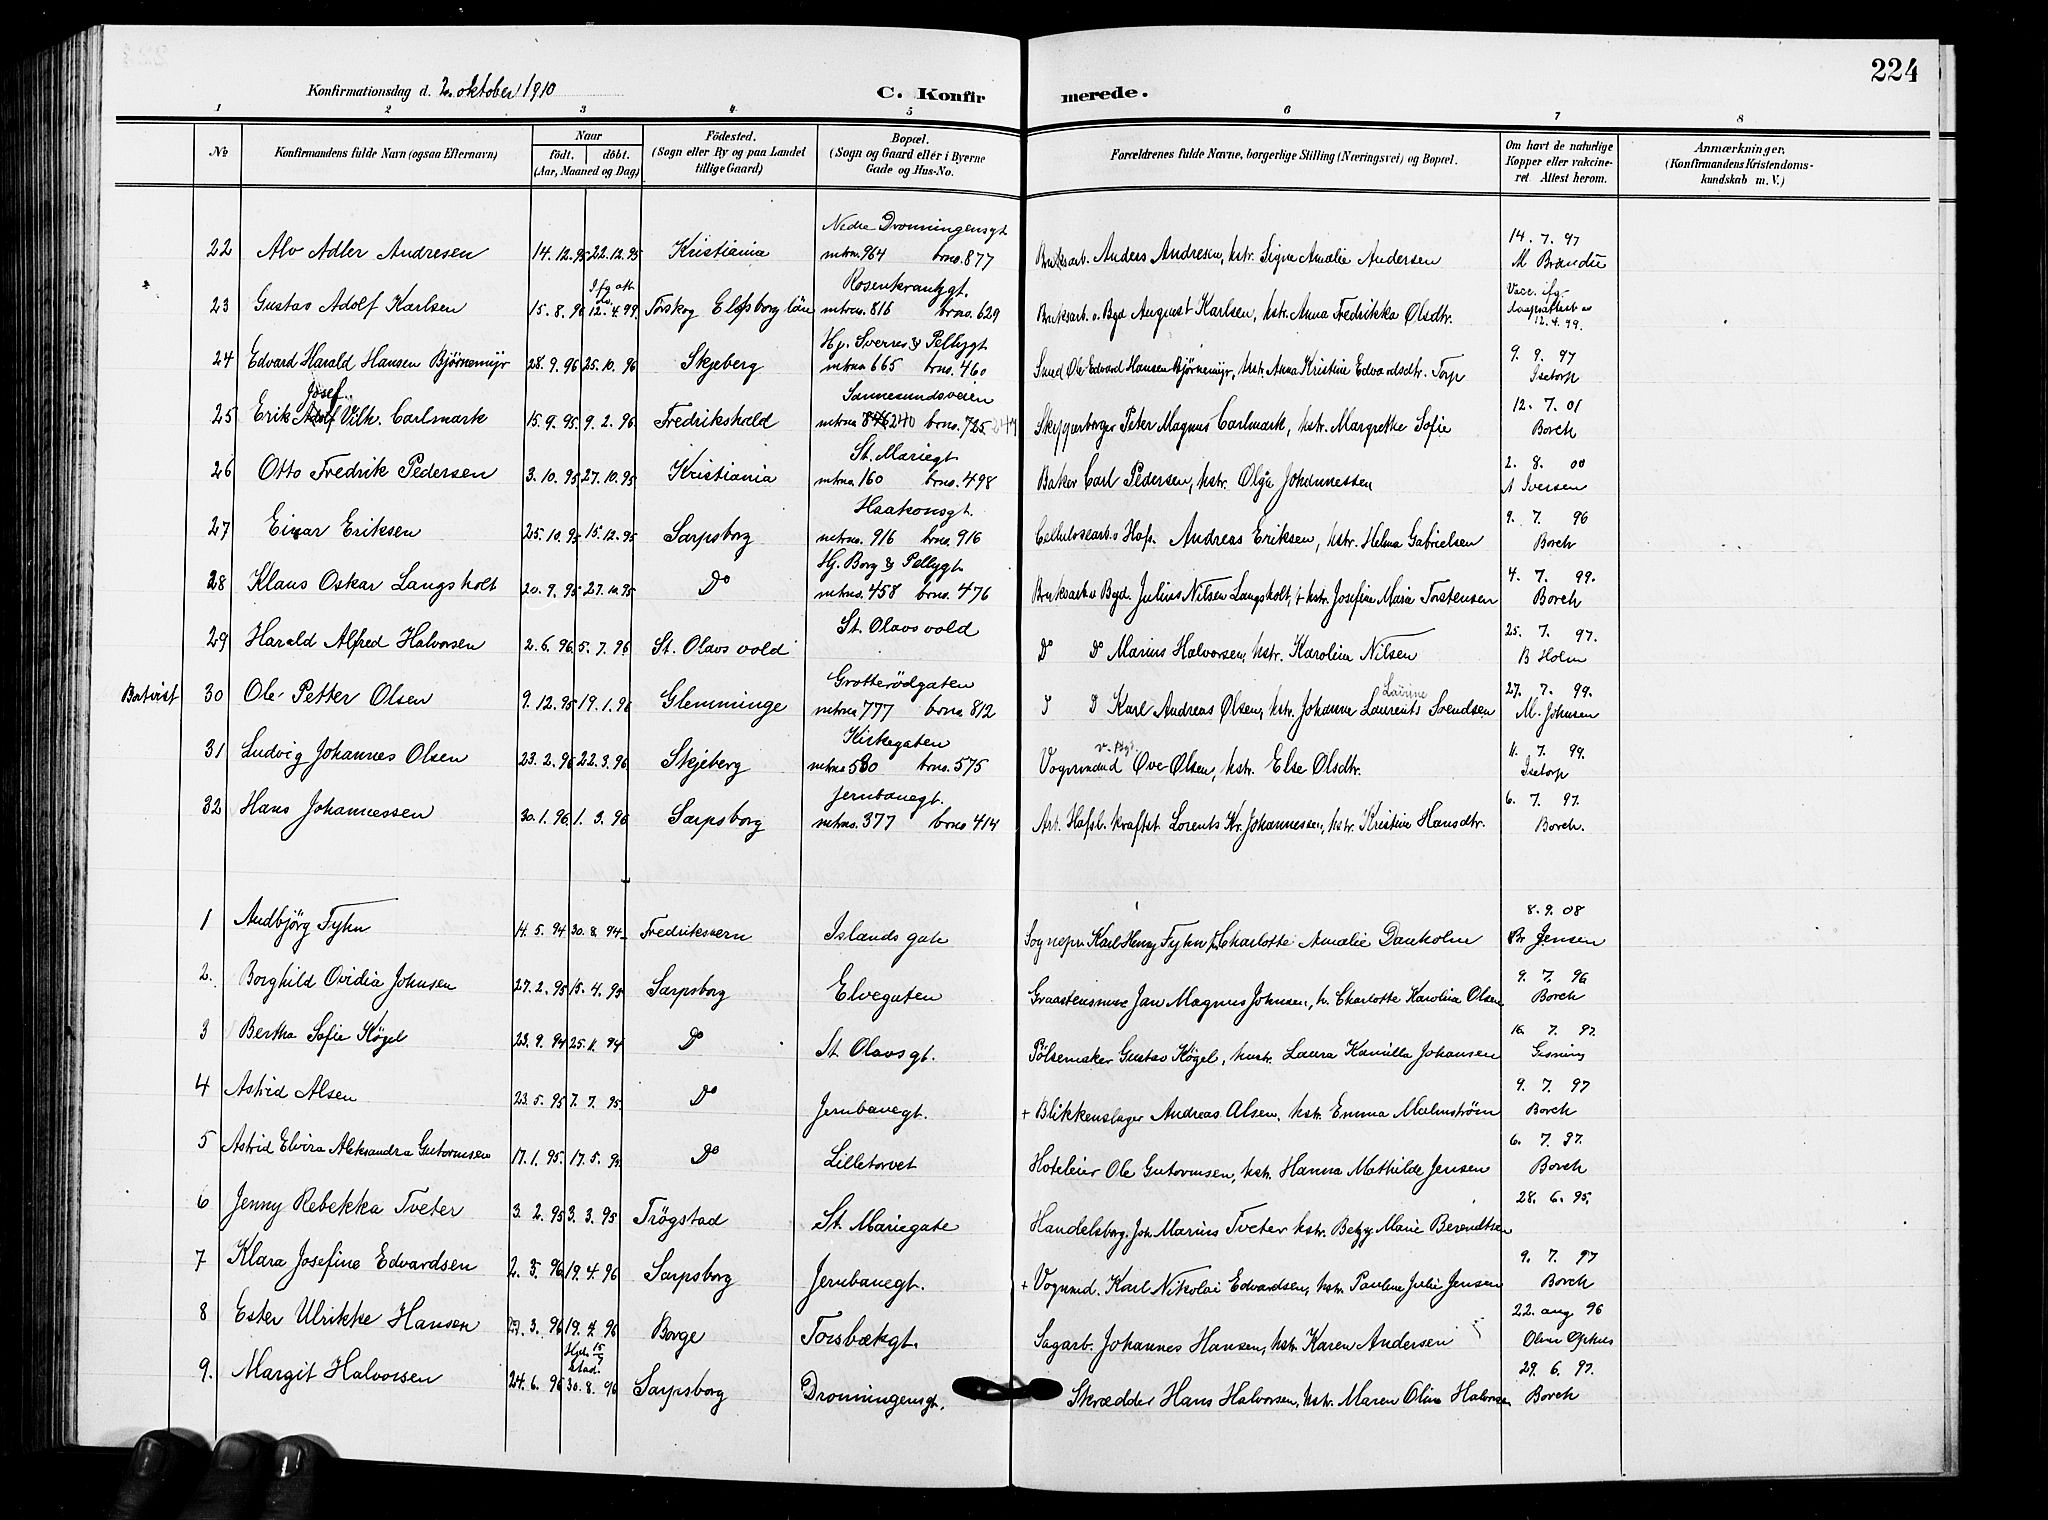 Konfirmationsdag d. 2. oktober 1910
C. Konfirmerede.
224
1 2 3 4 5 6 7 8
№ Konfirmandens fulde Navn (ogsaa Efternavn) Naar födt. döbt. (Aar, Maaned og Dag) Födested. (Sogn eller By og paa Landet tillige Gaard) Bopæl. (Sogn og Gaard eller i Byerne Gade og Hus-No. Forældrenes fulde Navne, borgerlige Stilling (Næringsvei) og Bopæl. Om havt de naturlige Kopper eller vakcineret Attest herom. Anmærkninger, (Konfirmandens Kristendomskundskab m. V.)
Nedre Dronningensgt 14. 7. 97
22 Alv Adler Andresen 14. 12. 95 22. 12. 95 Kristiania mtrno. 964 brno. 877 Bruksarb. Anders Andresen, hstr. Signe Amalie Andersen
Rosenkrantzgt. Vacc. ifg.
23 Gustav Adolf Karlsen 15. 8. 96 12. 4. 99. Torskog Elfsborg län mtrno. 816 brno. 629 Bruksarb. v. Bgd August Karlsen, hstr. Anna Fredrikka Olsdtr. 12. 4. 99.
Hj. Sverres & Pellygt 9. 9. 97
24 Edvard Harald Hansen Bjørnemyr 28. 9. 96 25. 10. 96 Skjeberg mtrno 665 brno. 460 Smed Ole Edvard Hansen Bjørnemyr, hstr. Anna Kristine Edvardsdtr. Torp Isetorp
Josef Sannesundsveien 12. 7. 01
25 Erik Adolf Vilh. Carlmark 15. 9. 95. 9. 2. 96. Fredrikshald mtrno 846 240 brno. 725 244 Skipperborger Peter Magnus Carlmark, hstr. Margrethe Sofie Borch
St. Mariegt 2. 8. 00
26 Otto Fredrik Pedersen 3. 10. 95 27. 10. 95 Kristiania mtrno 160 brno. 498 Baker Carl Pedersen, hstr. Olga Johannessen A Iversen
Haakonsgt. 9. 7. 96
27 Einar Eriksen 25. 10. 95 15. 12. 95 Sarpsborg mtrno. 916 brno. 916 Cellulosearb. v Hafs. Andreas Eriksen, hstr. Helma Gabrielsen Borch
Hj. Borg & Pellygt 4. 7. 99.
28 Klaus Oskar Langsholt 20. 9. 95 27. 10. 95 Do mtrno. 458 brno. 476 Bruksarb v Bgd. Julius Nilsen Langsholt, + hstr. Josefine Maria Torstensen Borch
St. Olavs vold 25. 7. 97.
29 Harald Alfred Halvorsen 2. 6. 96 5. 7. 96 St. Olavs vold Do Do Marius Halvorsen, hstr. Karoline Nilsen B Holm
Grotterødgaten Laurine 27. 7. 99.
30 Ole Petter Olsen 9. 12. 95 19. 1. 96 Glemminge mtrno 777 brno 812 D D Karl Andreas Olsen, hstr. Johanne Laurents Svendsen M. Johnsen
Kirkegaten v. Bgd. 11. 7. 99.
31 Ludvig Johannes Olsen 23. 2. 96 22. 3. 96 Skjeberg mtrno 580 brno. 575 Vognmand Ove Olsen, hstr. Else Olsdtr. Isetorp
Jernbanegt. 6. 7. 97.
32 Hans Johannessen 30. 1. 96 1. 3. 96 Sarpsborg mtrno. 377 brno 414 Arb. Hafsl. kraftst. Lorents Kr. Johannessen, hstr. Kristine Hansdtr. Borch.
8. 9. 08
1 Audbjörg Fyhn 14. 5. 94 30. 8. 94 Fredriksvern Islands gate Sognepr. Karl Henry Fyhn Charlotte Amalie Dankolm Br Jensen
9. 7. 96
2. Borghild Ovidia Johnsen 27. 2. 95 15. 4. 95 Sarpsborg Elvegaten Graastensmure Jan Magnus Johnsen, h. Charlotte Karolina Olsen Borch
16. 7. 97.
3 Bertha Sofie Kögel 23. 9. 94 25. 11. 94 Do St. Olavsgt. Pölsemaker Gustav Kögel, hustr. Laura Kamilla Johansen
9. 7. 97
4 Astrid Alsen 23. 5. 95 7. 7. 95. Do Jernbanegt. + Blikkenslager Andreas Alsen, hstr. Emma Malmström Borch
6. 7. 97.
5 Astrid Elvira Aleksandra Gutormsen 17. 1. 95. 17. 5. 95. Do Lilletorvet Hoteleier Ole Gutormsen, hstr. Hanna Mathilde Jensen Borch
28. 6. 95.
6 Jenny Rebekka Tveter 3. 2. 95 3. 3. 95 Trögstad St. Mariegate Handelsborg. Joh Marius Tveter hstr. Betzy Marie Berendtsen
9. 7. 97
7 Klara Josefine Edvardsen 2. 3. 96 19. 4. 96 Sarpsborg Jernbanegt. + Vognmd. Karl Nikolai Edvardsen, hstr. Pauline Julie Jensen Borch
22. aug 96
8 Ester Ulrikke Hansen 27. 3. 96 19. 4 96 Borge Torsbækgt. Sagarb. Johannes Hansen, hstr. Karen Andersen
Hjd. 15/7 29. 6. 97.
9. Margit Halvorsen 24. 6. 96 stad. 30. 8. 96 Sarpsborg Dronningensgt. Skrædder Hans Halvorsen, hstr. Maren Oline Halvorsen Borch